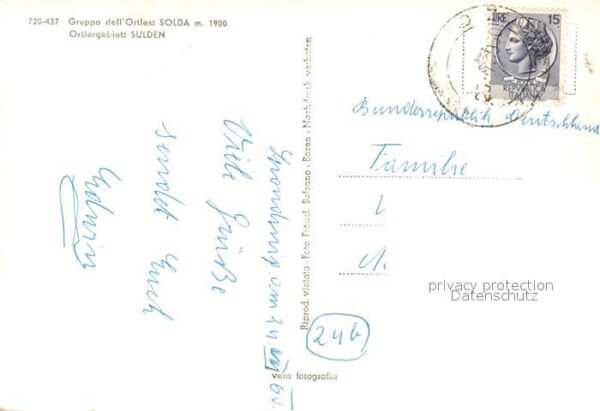 720-437 Gruppo dell'Ortles: SOLDA m. 1900
Ortlergebiet: SULDEN
LIRE 15
REPVBBLICA
ITALIANA
Bundesrepublik Deutschland
Familie
am 24. VIII 60.
Viele Grüße
sendet Euch
24b
Riprod. vietata - Foto Fränzl Bolzano - Bozen - Nachdruck verboten
vera fotografia
privacy protection
Datenschutz